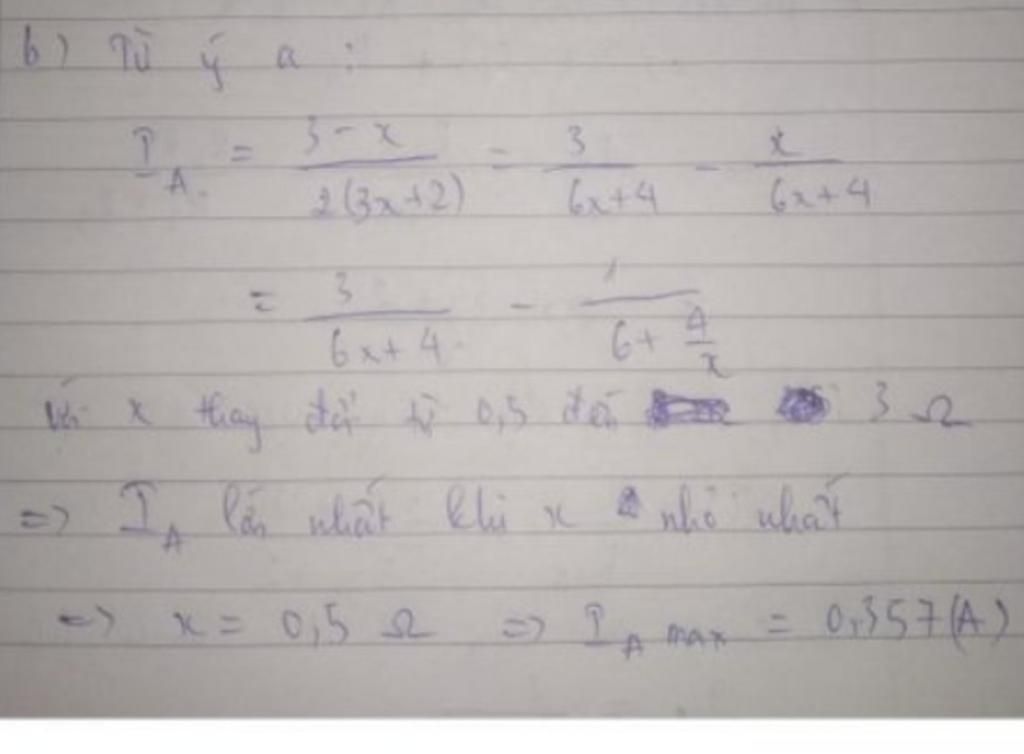 b) Từ ý a :
I_A = (3 - x)/(2(3x+2)) = 3/(6x+4) - x/(6x+4)
= 3/(6x+4) - 1/(6 + 4/x)
Với x thay đổi từ 0,5 đến 3 Ω
=> I_A lớn nhất khi x nhỏ nhất
=> x = 0,5 Ω => I_A max = 0,357(A)